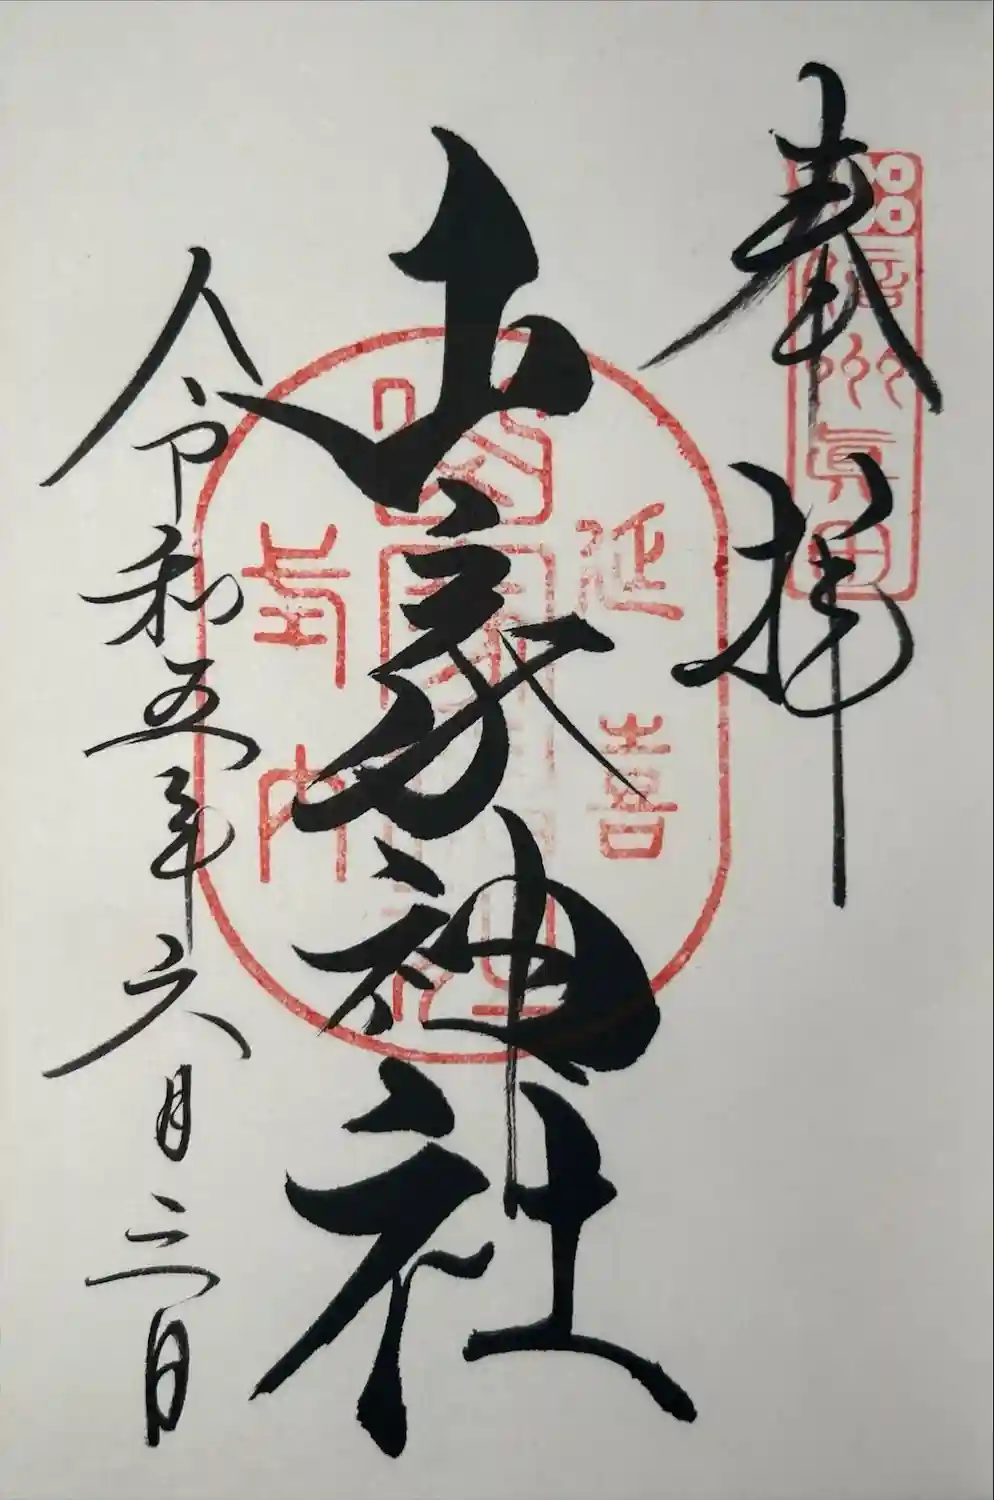 奉拝
信州眞田
山家神社
延喜
式内
山家神社
令和五年六月三日